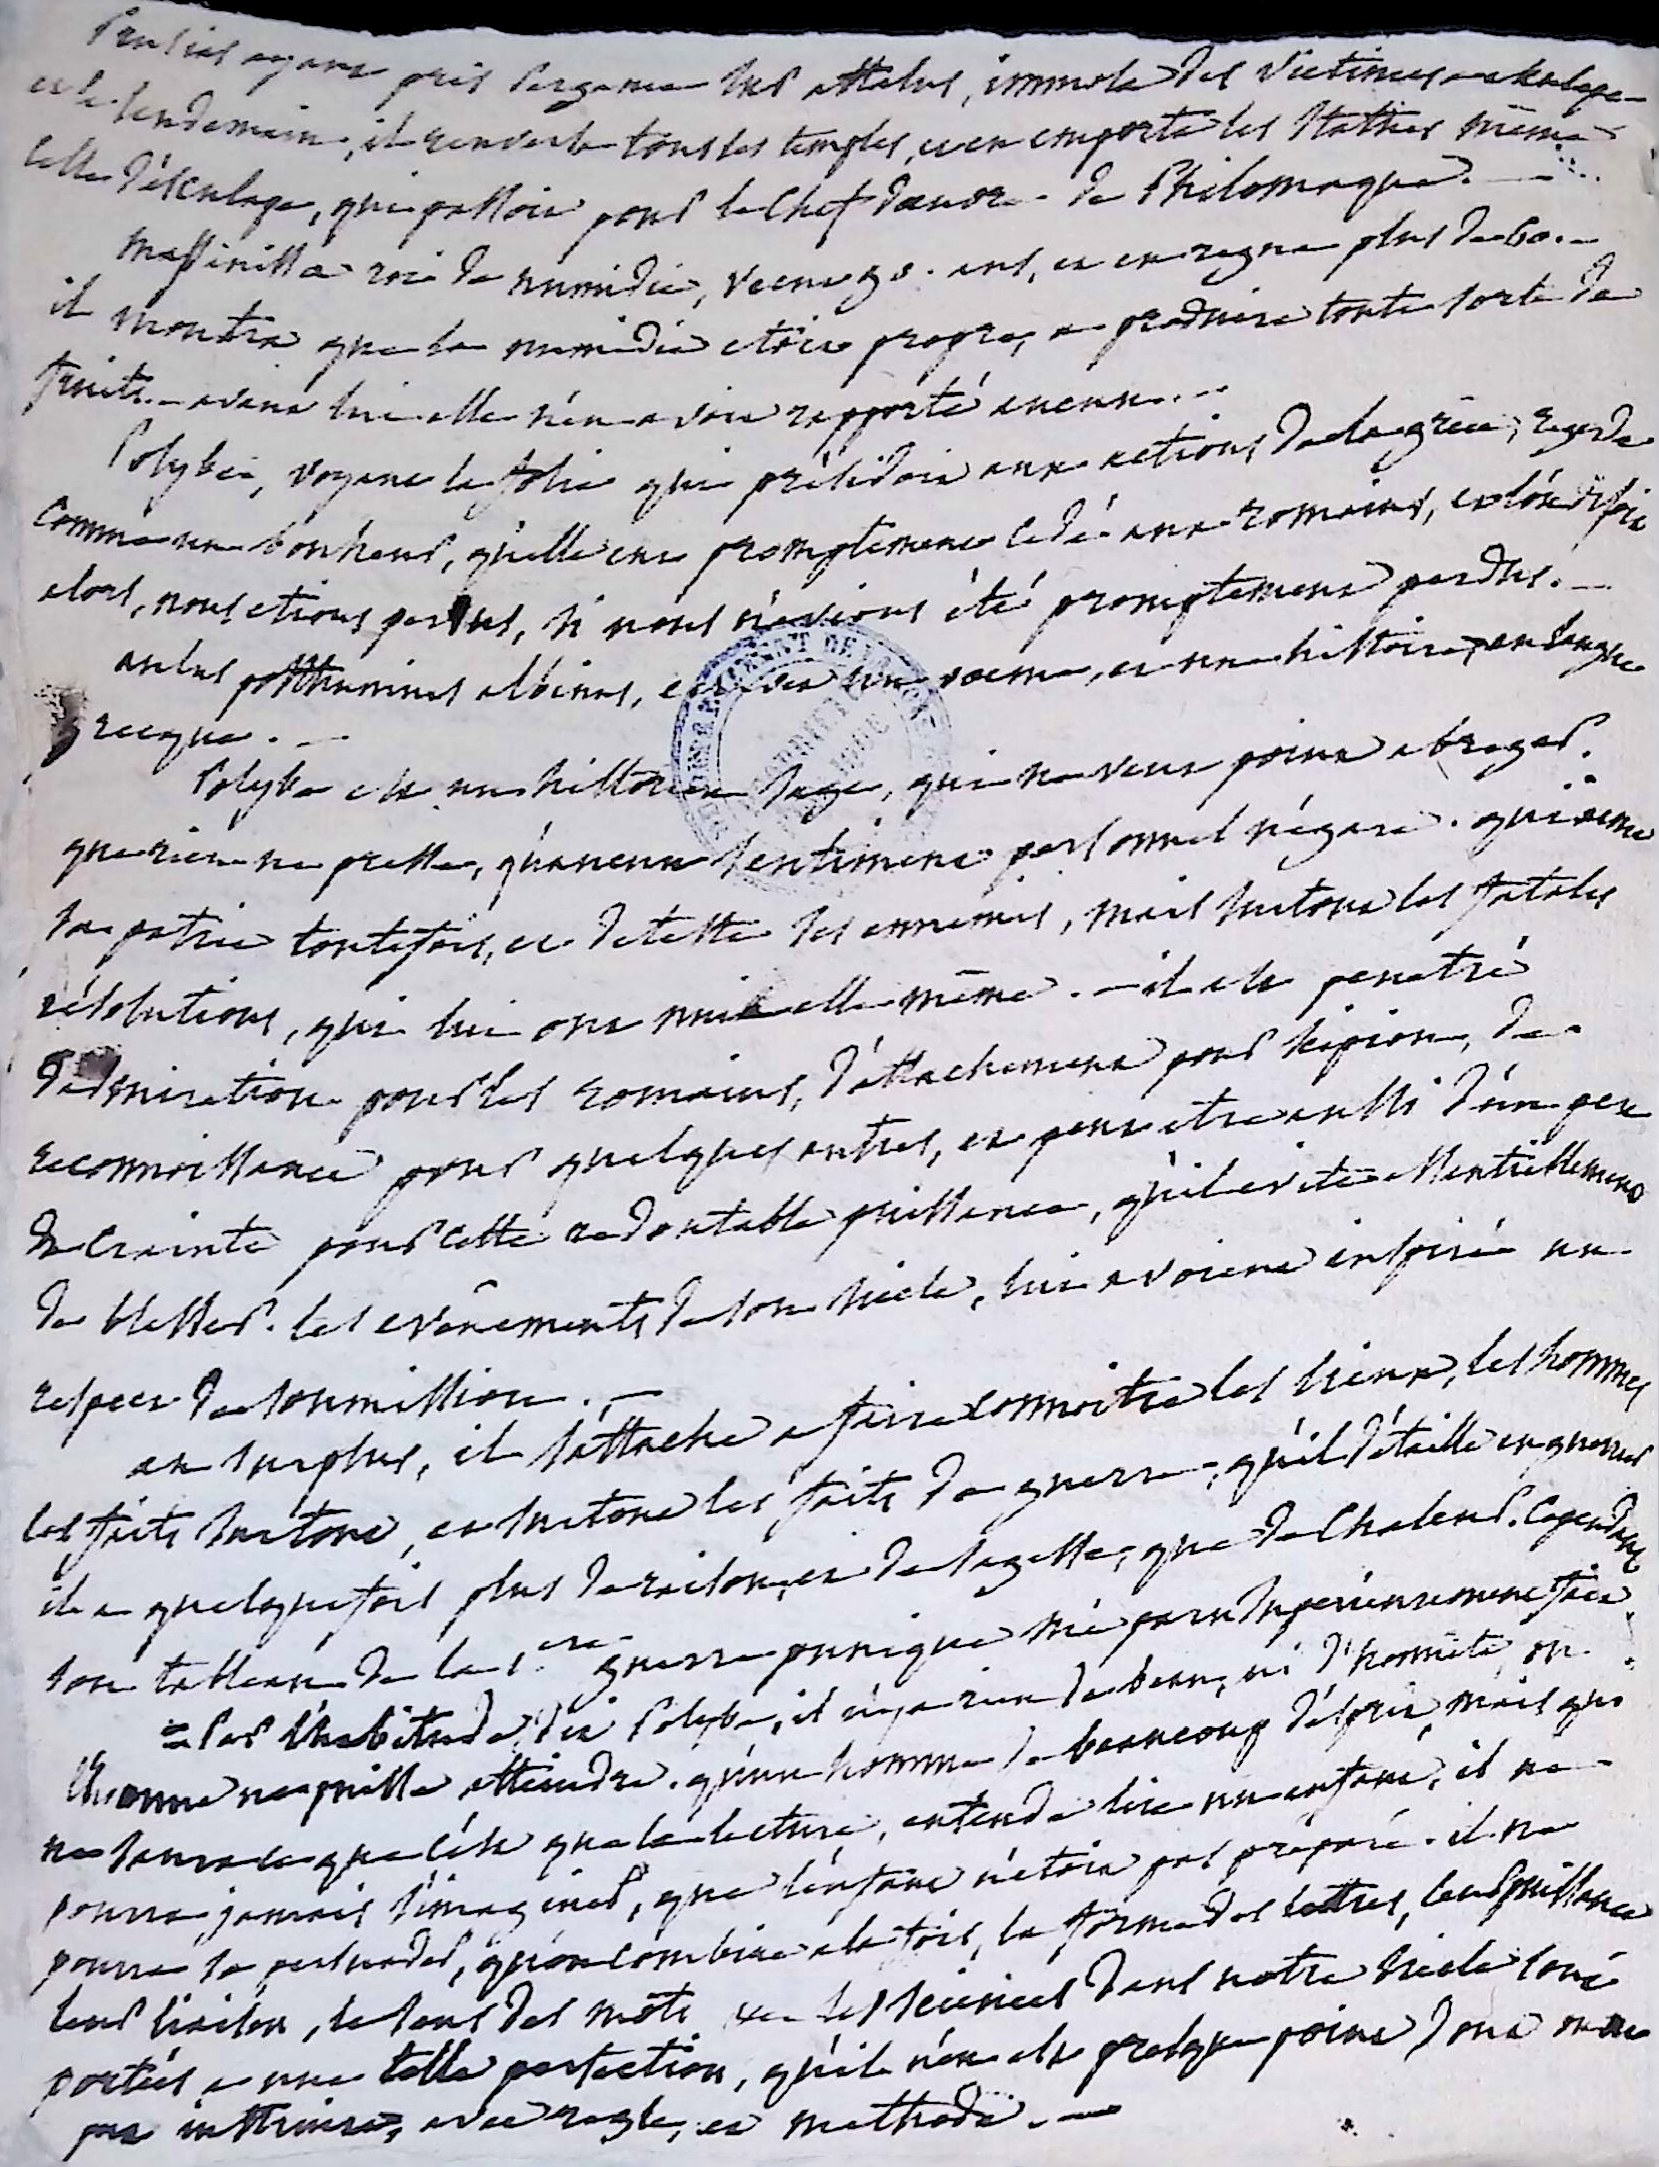 Prusias ayant pris Pergame sur Attalus, immola des victimes a Esculape
et le lendemain, il renversa tous les temples, et en emporta les statues même
celle d'Esculape, qui passoit pour le chef d'œuvre de Philomaque. —
Massinissa roi de numidie, vecut 90. ans, et en regna plus de 60. —
il montra que la numidie etoit propre, a produire toute sorte de
fruits. — avant lui elle n'en avoit rapporté aucun. —
Polybe, voyant la folie qui présidoit aux actions de la grèce, regarde
comme un bonheur, qu'elle eut promptement cedé aux romains, et l'on disoit
alors, nous etions perdus, si nous n'avions été promptement perdus. —
aulus posthumius albinus, ecrivit un poeme, et une histoire, en langue
grecque. —
Polybe est un historien sage, qui ne veut point abreger.
que rien ne presse, qu'aucun sentiment personnel n'égare. qui aime
sa patrie toutefois, et deteste ses ennemis, mais surtout les fatales
résolutions, qui lui ont nui elle même. — il est penetré
d'admiration pour les romains, d'attachement pour scipion, de
reconnoissance pour quelques autres, et peut etre aussi d'un peu
de crainte pour cette redoutable puissance, qu'il evite essentiellement
de blesser. les evênements de son siecle, lui avoient inspiré un
respect de soumission. —
au surplus, il s'attache a faire connoitre les lieux, les hommes
les faits surtout, et surtout les faits de guerre, qu'il détaille en guerrier
il a quelquefois plus de raison, et de sagesse, que de chaleur. Cependant
son tableau de la 1.ere guerre punique m'a paru superieurement fait.
= Par l'habitude, dit Polybe, il n'y a rien de beau, ni d'honnête, ou
l'homme ne puisse atteindre. qu'un homme de beaucoup d'esprit, mais qui
ne saura ce que c'est que la lecture, entende lire un enfant, il ne
pourra jamais s'imaginer, que l'enfant n'etoit pas préparé. il ne
pourra se persuader, qu'on combine a la fois, la forme des lettres, leur puissance
leur liaison, le sens des mots les sciences dans notre siecle sont
portées a une telle perfection, qu'il n'en est presque point dont on ne
put instruire, avec regle, et methode. —